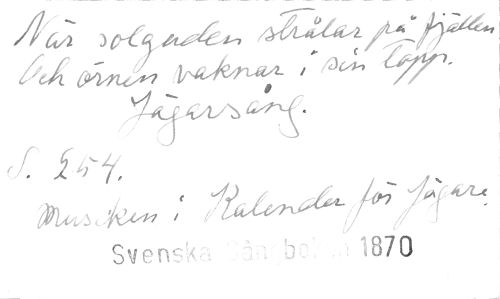 När solguden strålar på fjällen
Och örnen vaknar i sin topp.
Jägarsång.
S. 254.
Musiken i Kalender för Jägare.
Svenska Sångboken 1870